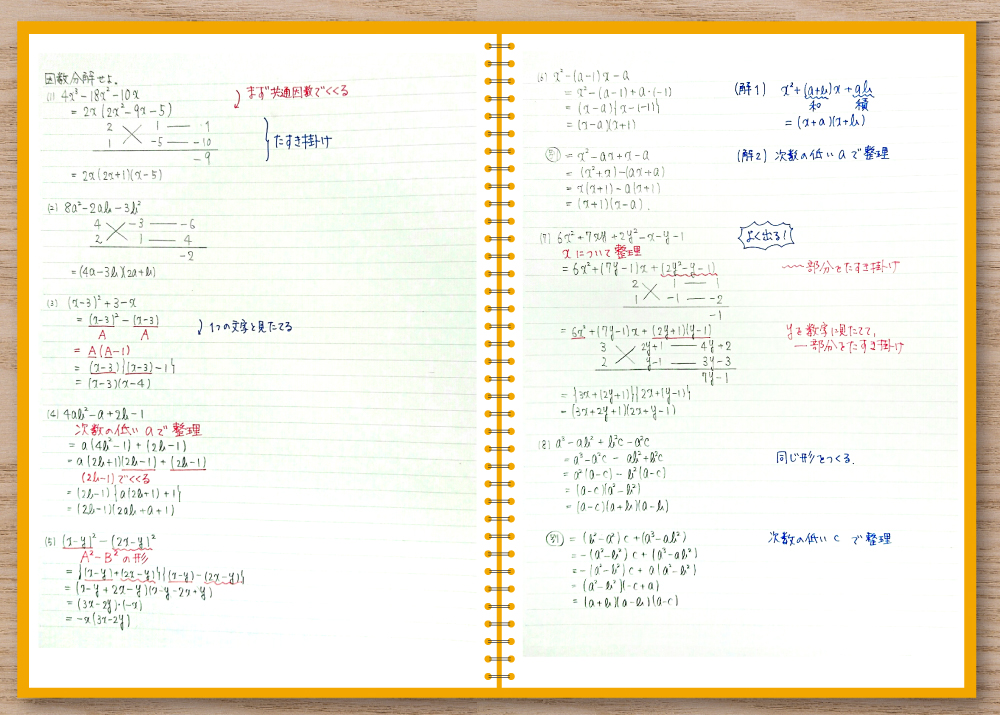 因数分解せよ。
(1) 4x³-18x²-10x
まず共通因数でくくる
= 2x(2x²-9x-5)
2 1 — 1
1 -5 — -10
-9
たすき掛け
= 2x(2x+1)(x-5)
(2) 8a²-2ab-3b²
4 -3 — -6
2 1 — 4
-2
=(4a-3b)(2a+b)
(3) (x-3)²+3-x
= (x-3)²-(x-3)
A A
1つの文字と見たてる
= A(A-1)
= (x-3){(x-3)-1}
= (x-3)(x-4)
(4) 4ab²-a+2b-1
次数の低いaで整理
= a(4b²-1)+(2b-1)
= a(2b+1)(2b-1)+(2b-1)
(2b-1)でくくる
= (2b-1){a(2b+1)+1}
= (2b-1)(2ab+a+1)
(5) (x-y)²-(2x-y)²
A²-B²の形
= {(x-y)+(2x-y)}{(x-y)-(2x-y)}
= (x-y+2x-y)(x-y-2x+y)
= (3x-2y)・(-x)
= -x(3x-2y)
(6) x²-(a-1)x-a
= x²-(a-1)+a・(-1)
= (x-a){x-(-1)}
= (x-a)(x+1)
(解1) x²+(a+b)x+ab
和 積
= (x+a)(x+b)
別 = x²-ax+x-a
= (x²+x)-(ax+a)
= x(x+1)-a(x+1)
= (x+1)(x-a).
(解2) 次数の低いaで整理
(7) 6x²+7xy+2y²-x-y-1
よく出る!
xについて整理
= 6x²+(7y-1)x+(2y²-y-1)
部分をたすき掛け
2 1 — 1
1 -1 — -2
-1
= 6x²+(7y-1)x+(2y+1)(y-1)
yを数字に見たてて、
部分をたすき掛け
3 2y+1 — 4y+2
2 y-1 — 3y-3
7y-1
= {3x+(2y+1)}{2x+(y-1)}
= (3x+2y+1)(2x+y-1)
(8) a³-ab²+b²c-a²c
= a³-a²c-ab²+b²c
= a²(a-c)-b²(a-c)
= (a-c)(a²-b²)
= (a-c)(a+b)(a-b)
同じ形をつくる.
別 = (b²-a²)c+(a³-ab²)
= -(a²-b²)c+(a³-ab²)
= -(a²-b²)c+a(a²-b²)
= (a²-b²)(-c+a)
= (a+b)(a-b)(a-c)
次数の低いcで整理